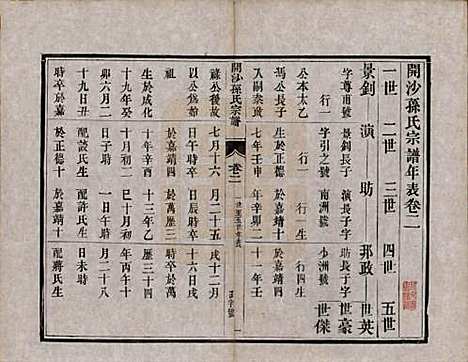 開沙孫氏宗譜年表卷二
一世 二世 三世 四世 五世
景釗 演 助 邦政 世英
字尊甫號 景釗長子 演長子字 助長子字 世豪
行一 字引之號 南洲號 少洲號 世傑
公本太乙 行一 行一生 行四生
馮公長子 生於正德 於嘉靖十 於嘉靖
入嗣泰 七年壬申 年辛卯二 十一年壬
開沙孫氏宗譜 卷二 一世至五世年表
祿公後故 七月十六 月二十五 戌十二月
以公為始 日午時卒 日午時卒 十六日戌
祖 於嘉靖四 於萬 時卒於萬
生於成化 十年辛酉 十三年乙 歷三十四
十九年癸 十月初三 十月初二 年丙午十
卯六月二 日 一日午時 月二十八
十九日丑 配談氏生 配許氏生 日未時
時卒於嘉 於正德十 於嘉靖十 配蔣氏生